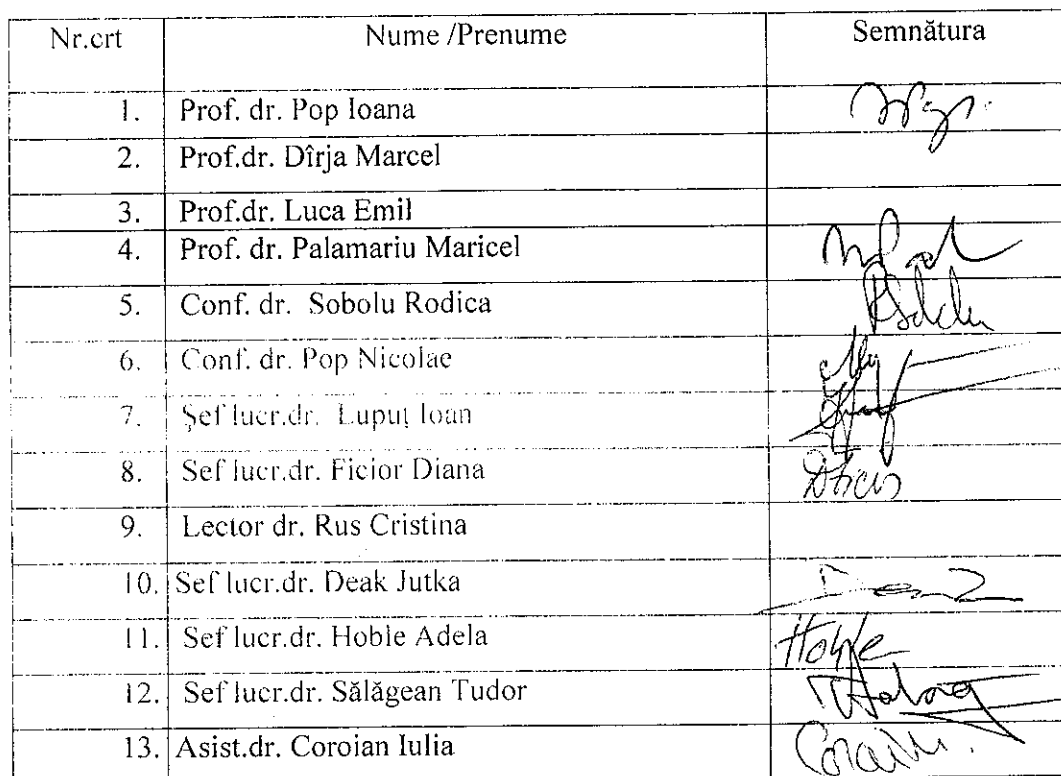 Nr.crt Nume /Prenume Semnătura
1. Prof. dr. Pop Ioana
2. Prof.dr. Dîrja Marcel
3. Prof.dr. Luca Emil
4. Prof. dr. Palamariu Maricel
5. Conf. dr. Sobolu Rodica
6. Conf. dr. Pop Nicolae
7. Şef lucr.dr. Lupuţ Ioan
8. Sef lucr.dr. Ficior Diana
9. Lector dr. Rus Cristina
10. Sef lucr.dr. Deak Jutka
11. Sef lucr.dr. Hoble Adela
12. Sef lucr.dr. Sălăgean Tudor
13. Asist.dr. Coroian Iulia